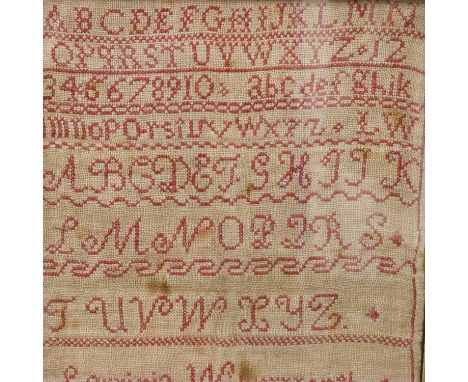 ABCDEFGHIJKLMN
OPQRSTUVWXYZ 12
345678910 abcdefghijk
lmnopqrstuvwxyz LW
ABCDEFGHIJK
LMNOPQRS
TUVWXYZ.